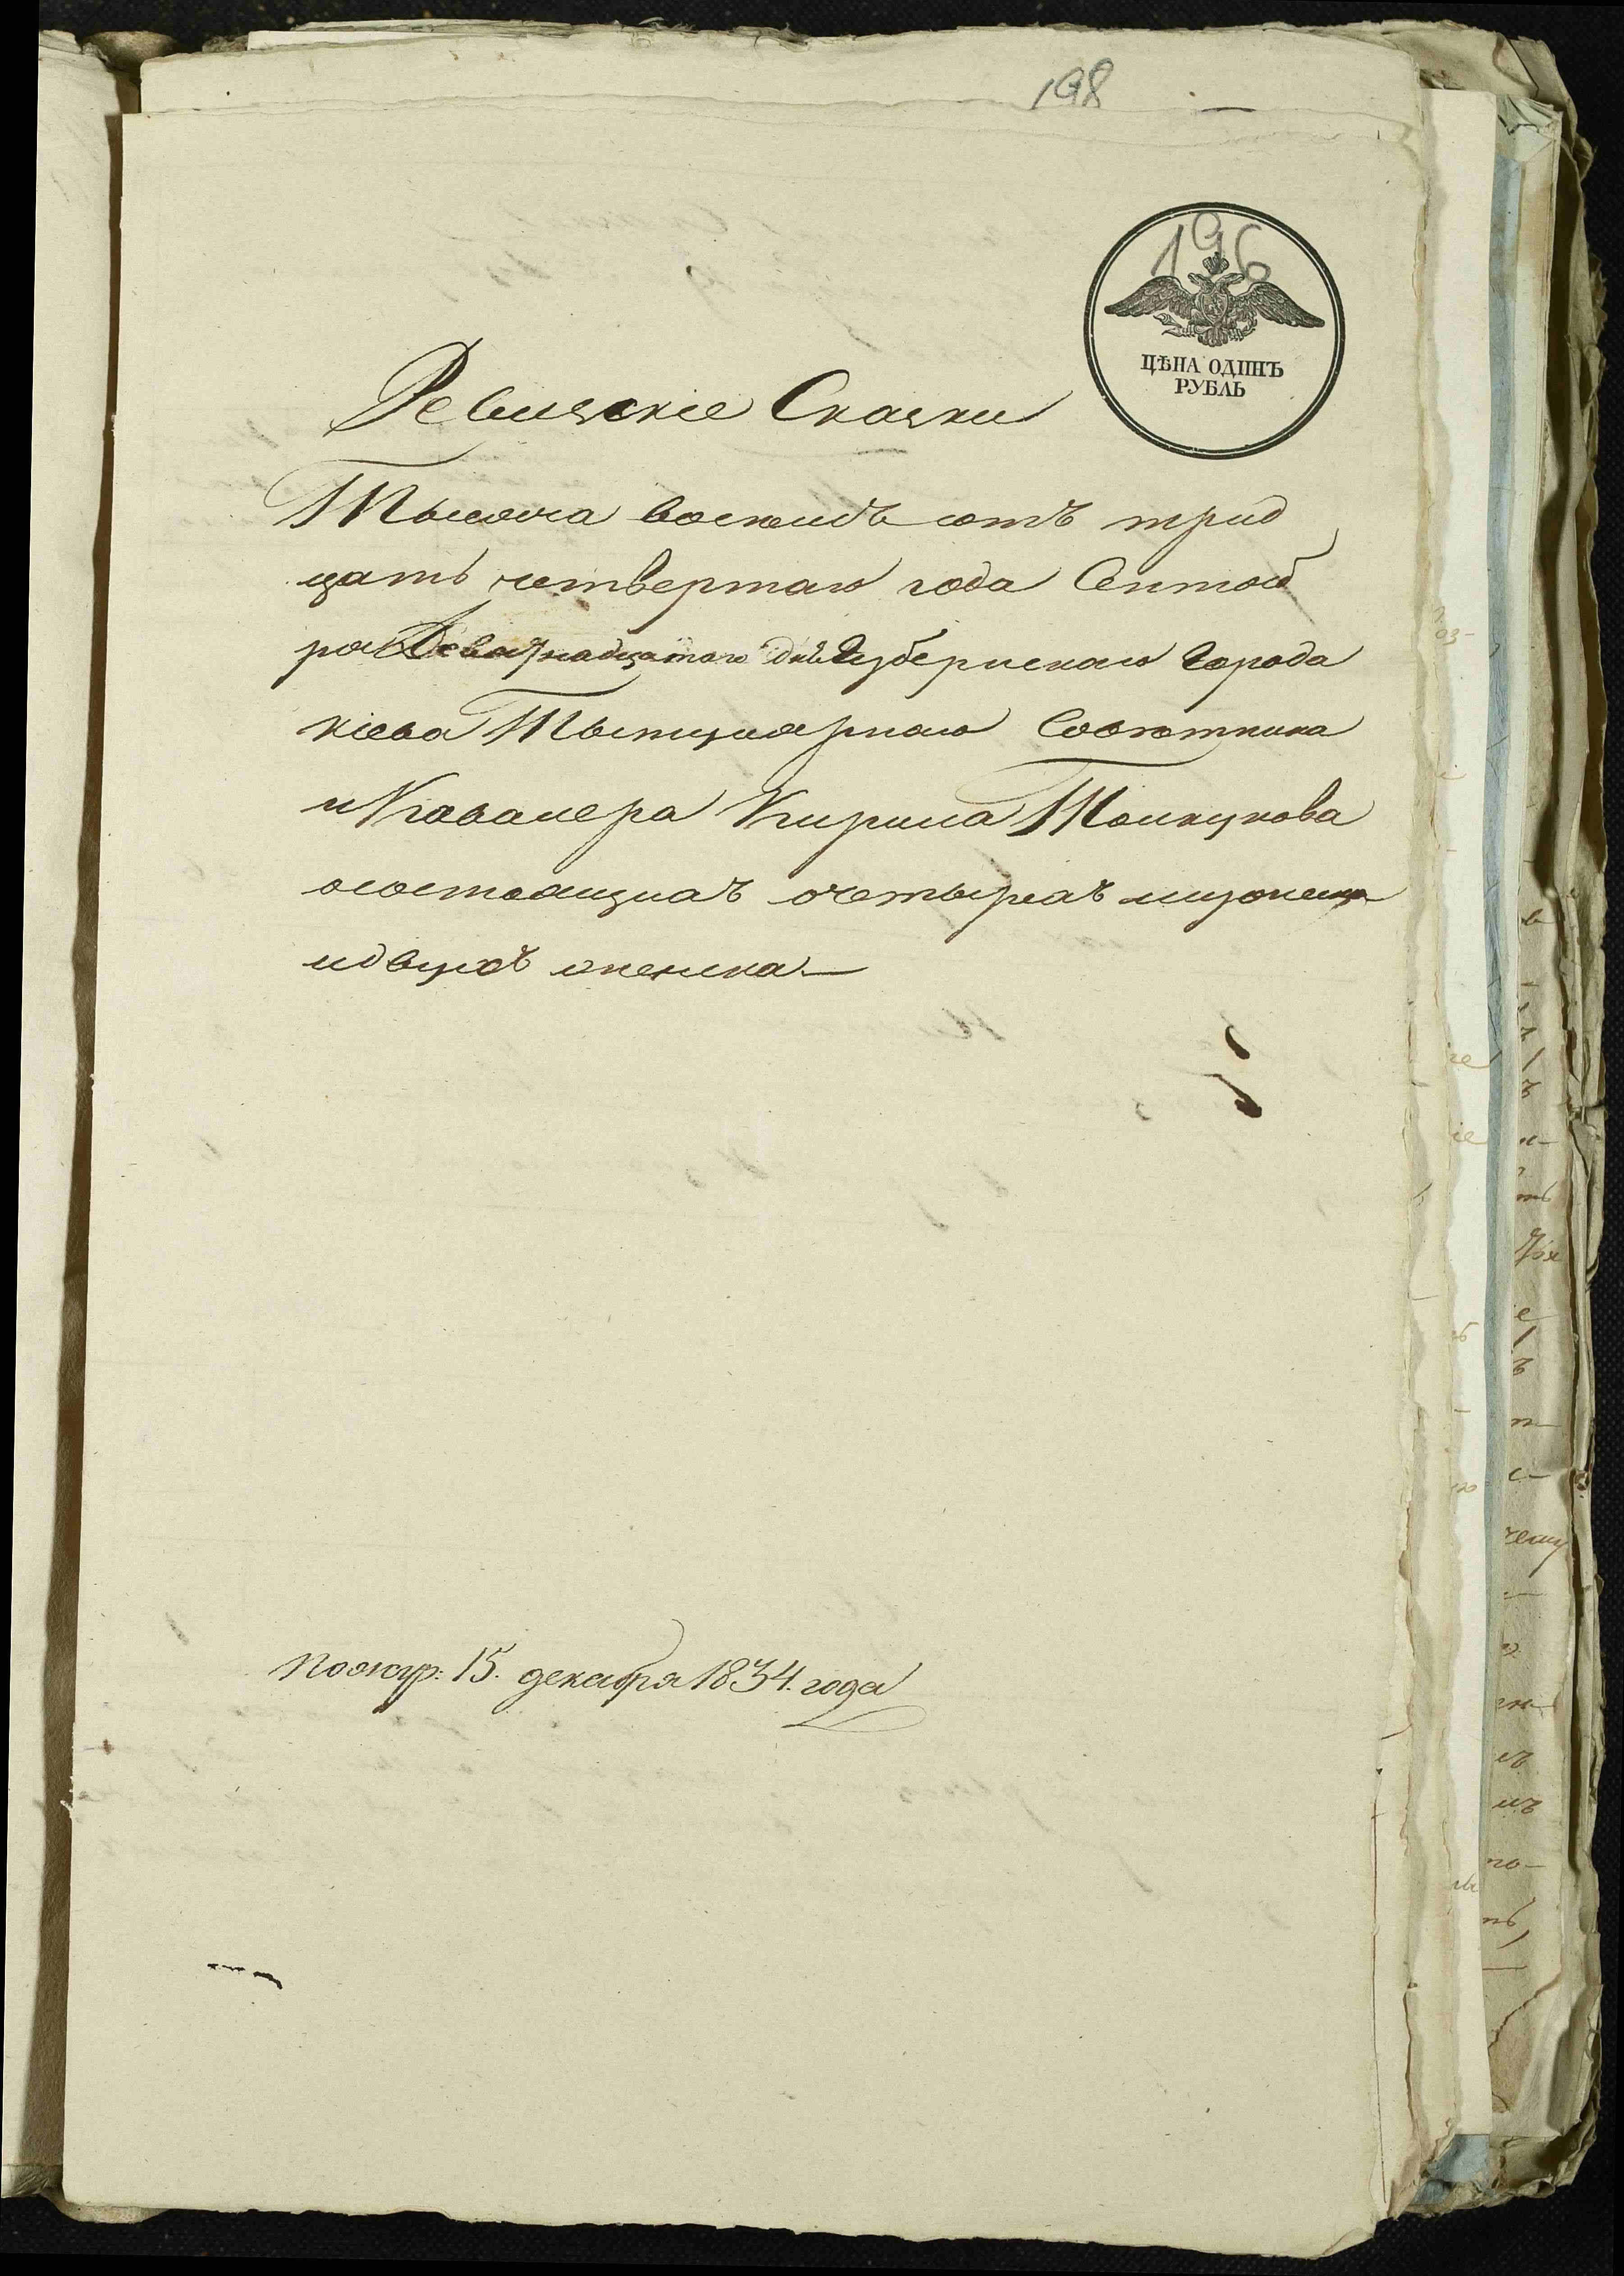 198
196
ЦѢНА ОДИНЪ
РУБЛЬ
Ревизскіе Сказки
Тысяча восемъ сотъ трид
цать четвертаго года Сентяб
ря Девятнадцатаго дня Губернскаго города
Кіева Титулярнаго Совѣтника
и Кавалера Кирила
осостоящихъ очетырехъ мужеска
идвухъ женска
По жур: 15. декабря 1834. года